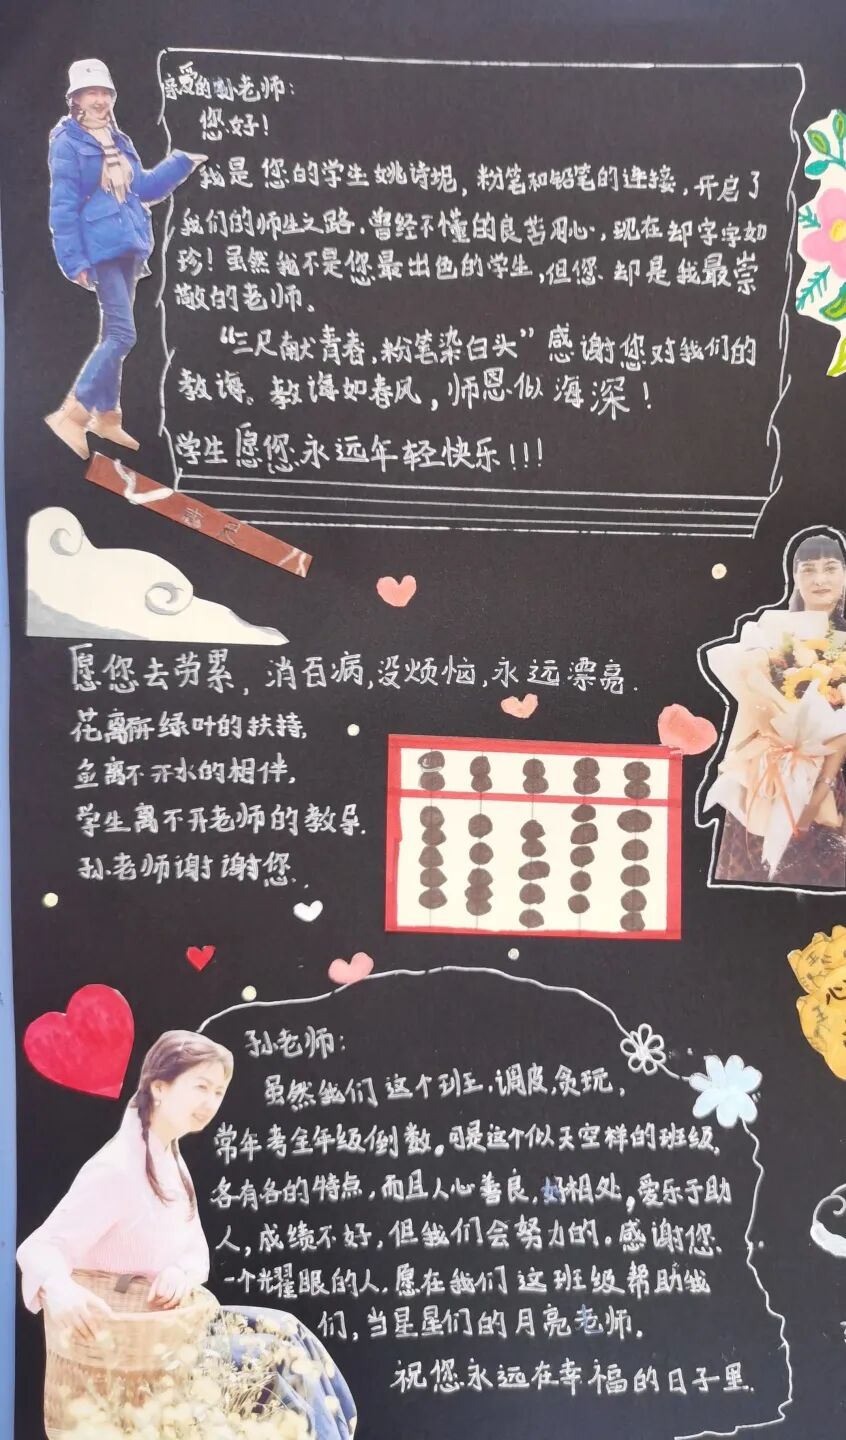 亲爱的孙老师:
您好!
我是您的学生姚诗妮,粉笔和铅笔的连接,开启了
我们的师生之路,曾经不懂的良苦用心,现在却字字如
珍!虽然我不是您最出色的学生,但您却是我最崇
敬的老师。
“三尺献青春,粉笔染白头”感谢您对我们的
教诲。教诲如春风,师恩似海深!
学生愿您永远年轻快乐!!!
愿您去劳累,消百病,没烦恼,永远漂亮.
花离所绿叶的扶持,
鱼离不开水的相伴,
学生离不开老师的教导.
孙老师谢谢您.
心
孙老师:
虽然我们这个班,调皮,贪玩,
常年考全年级倒数。可是这个似天空样的班级,
各有各的特点,而且人心善良,好相处,爱乐于助
人,成绩不好,但我们会努力的。感谢您.
一个耀眼的人.愿在我们这班级帮助我
们,当星星们的月亮老师.
祝您永远在幸福的日子里.